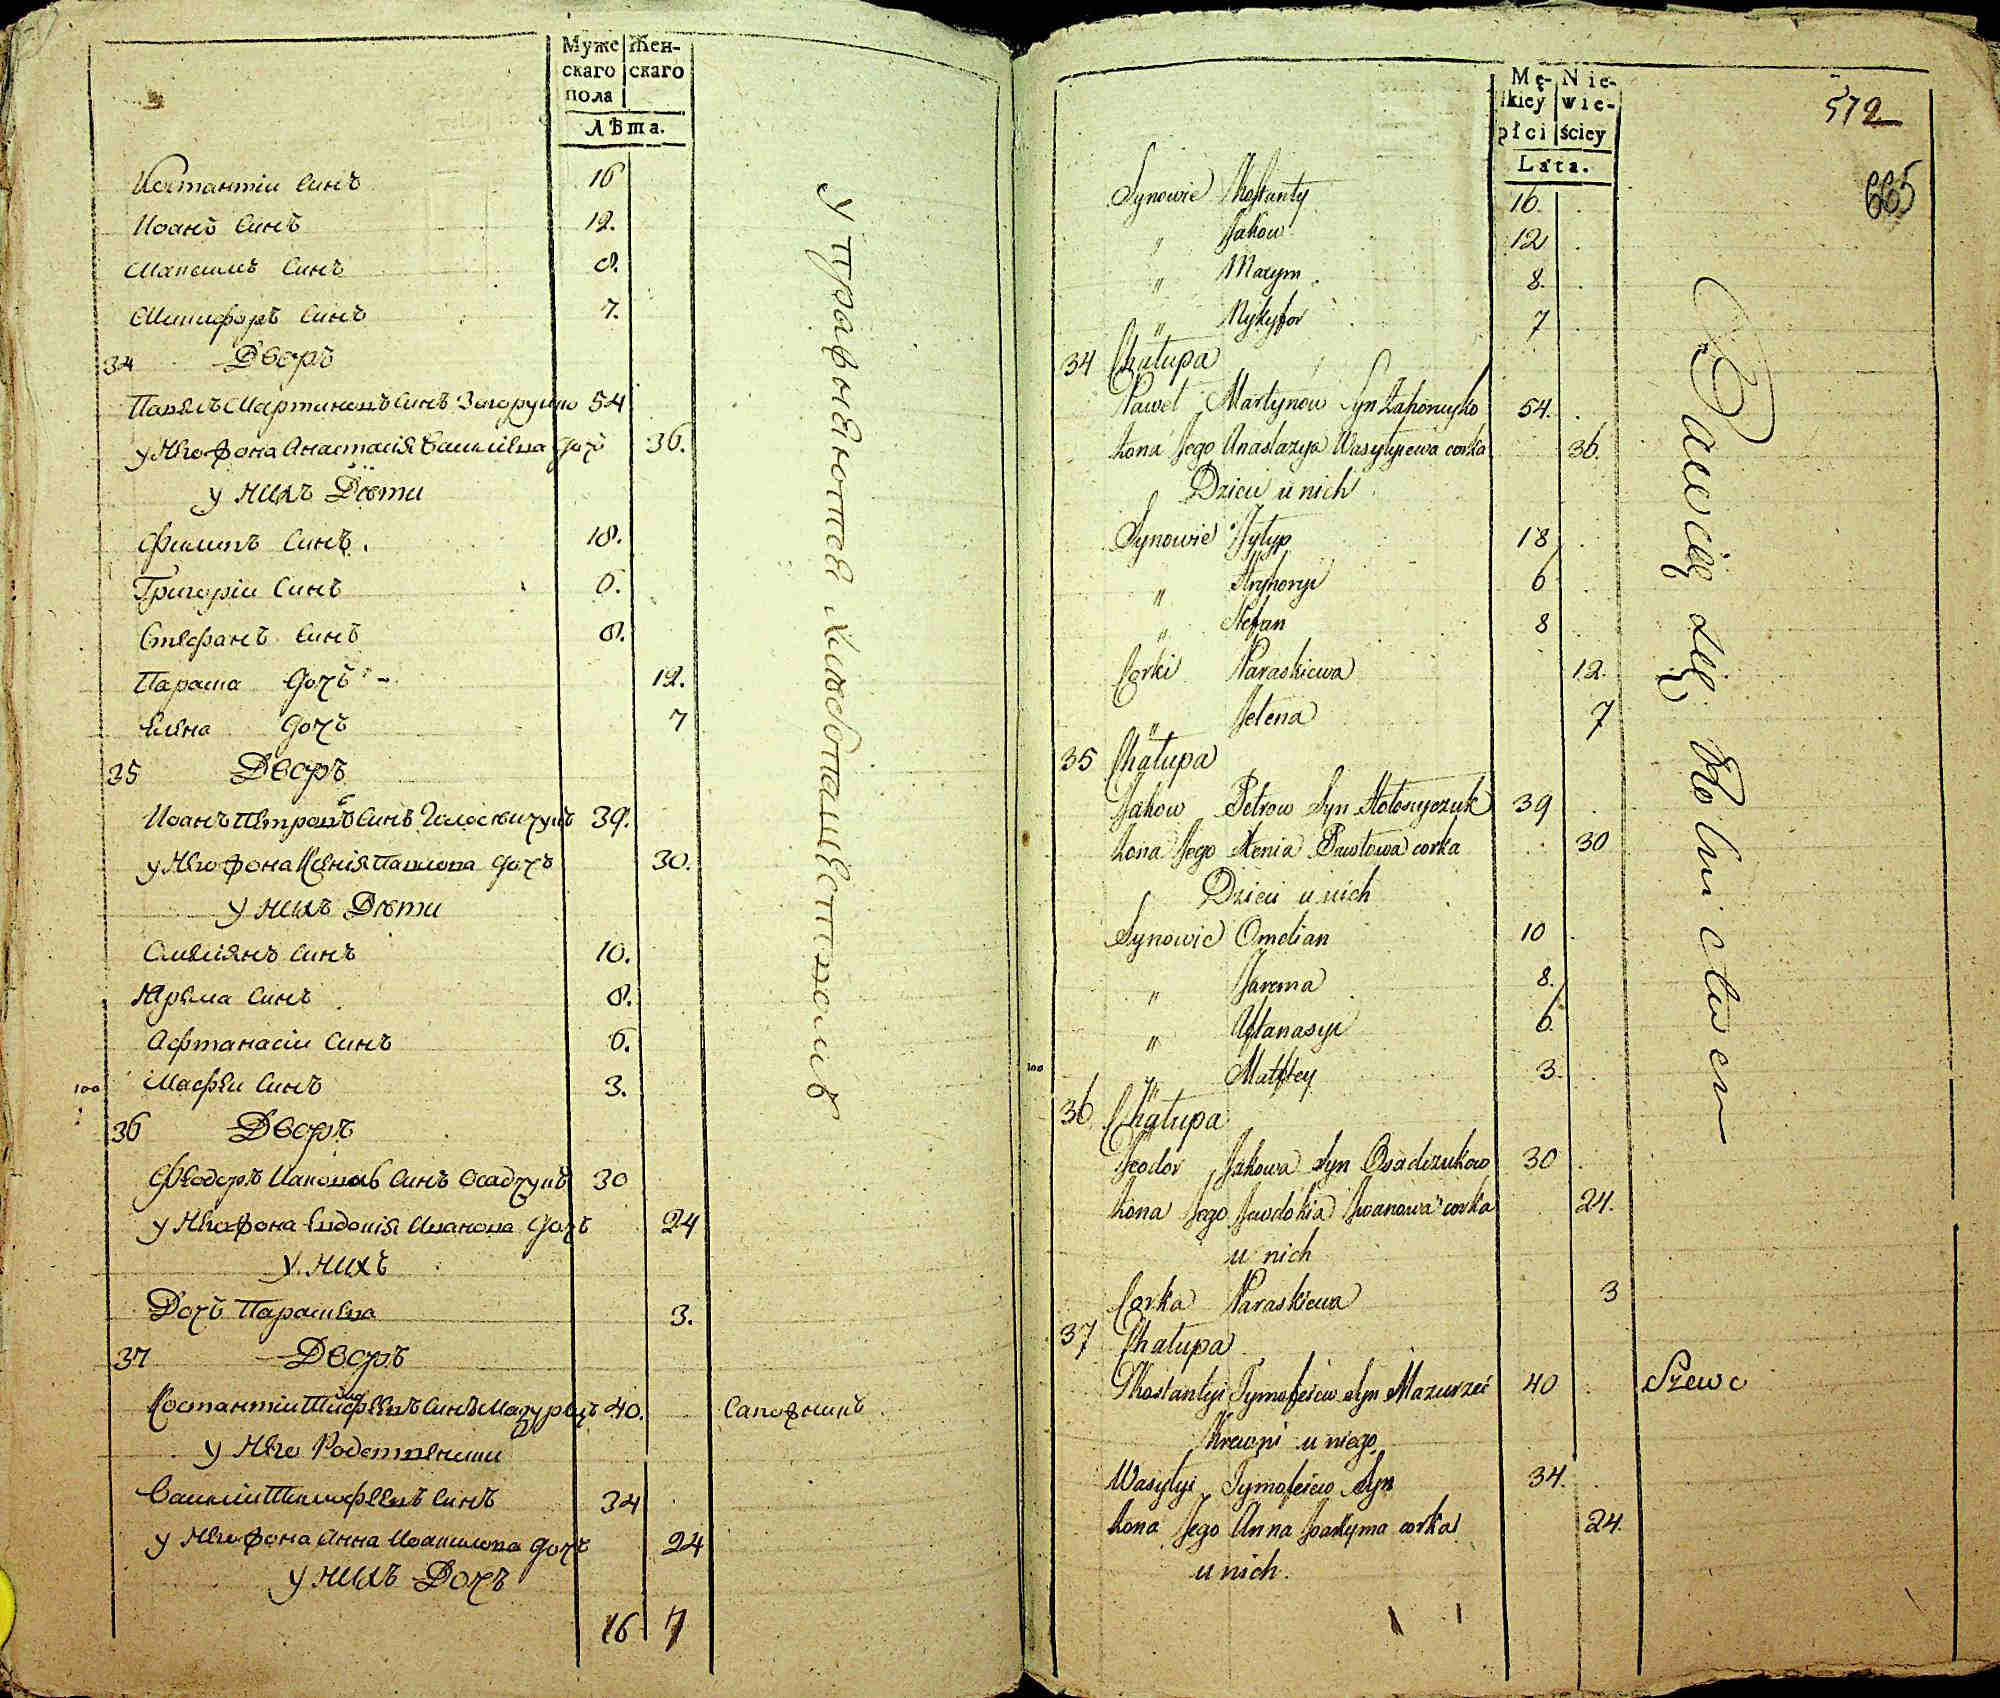 Муже
скаго
пола
Жен-
скаго
Лѣта.
Костантіи Синъ 16
Иоанъ Синъ 12.
Максимъ Синъ 8.
Никифоръ Синъ 7.
34 Дворъ
Павелъ Мартиновъ Синъ 54
у Него Жона Анастасія Василіева Дочъ 36.
у нихъ Дѣти
Филипъ Синъ. 18.
Григоріи Синъ 6.
Стефанъ Синъ 8.
Параска Дочъ 12.
Елена Дочъ 7
35 Дворъ
Иоанъ Петровъ Синъ 39.
у Него Жона Ксенія Павлова Дочъ 30.
у нихъ Дѣти
Омеліянъ Синъ 10.
Ярема Синъ 8.
Афтанасіи Синъ 6.
100 Матфеи Синъ 3.
36 Дворъ
Феодоръ Яковлевъ Синъ Осадчукъ 30
у Него Жона Евдокія Иванова Дочъ 24
у нихъ
Дочъ Параскева 3.
37 Дворъ
Костантіи Тимофеевъ Синъ Мазурецъ 40. Сапожникъ
у Него Родственники
Василіи Тимофеевъ Синъ 34
у Него Жона Анна Иоакимова Дочъ 24
у нихъ Дочъ
16 7
Упражняются хлебопашествомъ
Mę-
skiey
płci
Nie-
wie-
ściey
Lata.
572
665
Synowie Kostanty 16.
" Jakow 12
" Maxym 8.
" Nykyfor 7
34 Chałupa
Paweł Martynow Syn 54.
Żona Jego Anastazya Wasylyiewa corka 36.
Dzieci u nich
Synowie Fylyp 18
" Hryhoryi 6
" Stefan 8
Corki Paraskiewa 12.
" Jelena 7
35 Chałupa
Jakow Petrow Syn 39
Żona Jego Xenia Pawłowa corka 30
Dzieci u nich
Synowie Omelian 10
" Jarema 8.
" Aftanasyi 6.
100 " Matftey 3.
36 Chałupa
Feodor Jakowa Syn Osadczukow 30
Żona Jego Jewdokia Iwanowa corka 24.
u nich
Corka Paraskiewa 3
37 Chałupa
Kostantyi Tymofeiew Syn Mazurzec 40 Szewc
Krewni u niego
Wasylyi Tymofeiew Syn 34.
Żona Jego Anna Joakyma corka 24.
u nich
Bawią się Rolnictwem